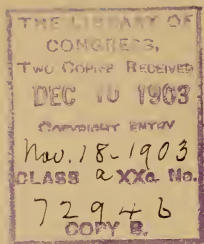 THE LIBRARY OF
CONGRESS,
TWO COPIES RECEIVED
DEC 10 1903
COPYRIGHT ENTRY
Nov. 18-1903
CLASS a XXc. No.
72946
COPY B.